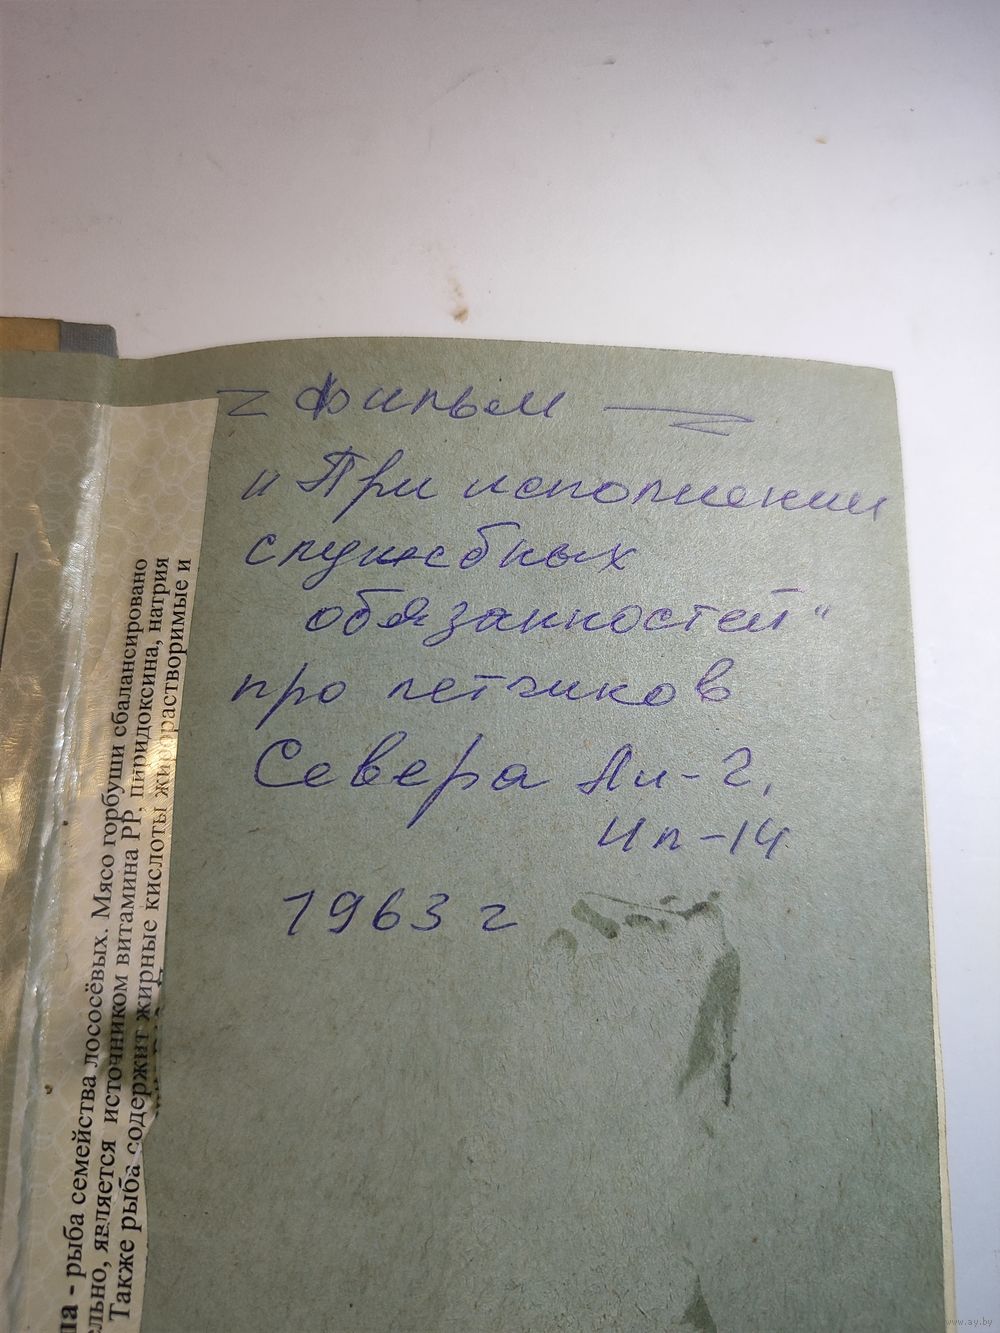 Фильм
"При исполнении
служебных
обязанностей"
про летчиков
Севера Ли-2,
Ил-14
1963 г
ша - рыба семейства лососёвых. Мясо горбуши сбалансировано
ельно, является источником витамина РР, пиридоксина, натрия
Также рыба содержит жирные кислоты жирорастворимые и
www.ay.by